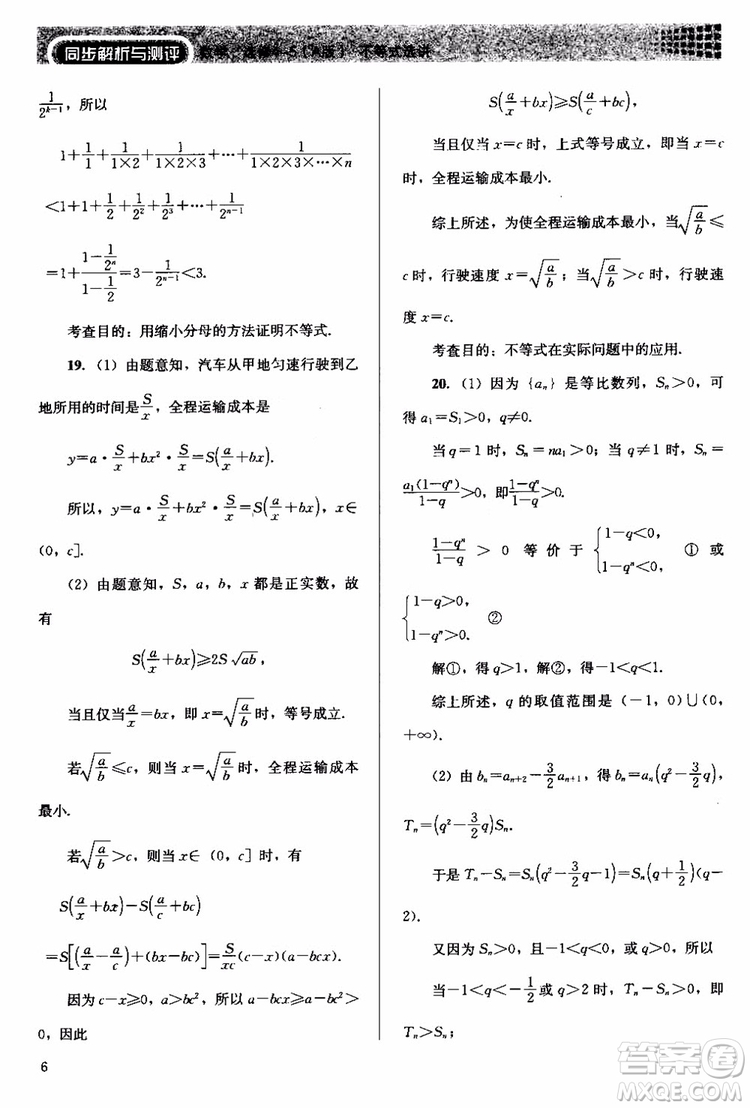 同步解析与测评 数学 选修4-5（A版） 不等式选讲
1/2^{k-1}，所以
1+1/1+1/(1×2)+1/(1×2×3)+⋯+1/(1×2×3×⋯×n)
<1+1+1/2+1/2²+1/2³+⋯+1/2^{n-1}
=1+(1-1/2ⁿ)/(1-1/2)=3-1/2^{n-1}<3.
考查目的：用缩小分母的方法证明不等式.
19.（1）由题意知，汽车从甲地匀速行驶到乙
地所用的时间是S/x，全程运输成本是
y=a·S/x+bx²·S/x=S(a/x+bx).
所以，y=a·S/x+bx²·S/x=S(a/x+bx)，x∈
(0，c].
（2）由题意知，S，a，b，x都是正实数，故
有
S(a/x+bx)≥2S√(ab)，
当且仅当a/x=bx，即x=√(a/b)时，等号成立.
若√(a/b)≤c，则当x=√(a/b)时，全程运输成本
最小.
若√(a/b)>c，则当x∈(0，c]时，有
S(a/x+bx)-S(a/c+bc)
=S[(a/x-a/c)+(bx-bc)]=S/xc(c-x)(a-bcx).
因为c-x≥0，a>bc²，所以a-bcx≥a-bc²>
0，因此
6
S(a/x+bx)≥S(a/c+bc)，
当且仅当x=c时，上式等号成立，即当x=c
时，全程运输成本最小.
综上所述，为使全程运输成本最小，当√(a/b)≤
c时，行驶速度x=√(a/b)；当√(a/b)>c时，行驶速
度x=c.
考查目的：不等式在实际问题中的应用.
20.（1）因为{aₙ}是等比数列，Sₙ>0，可
得a₁=S₁>0，q≠0.
当q=1时，Sₙ=na₁>0；当q≠1时，Sₙ=
a₁(1-qⁿ)/(1-q)>0，即(1-qⁿ)/(1-q)>0.
(1-qⁿ)/(1-q)>0等价于{1-q<0，1-qⁿ<0 ①或
{1-q>0，1-qⁿ>0 ②
解①，得q>1，解②，得-1<q<1.
综上所述，q的取值范围是(-1，0)∪(0，
+∞).
（2）由bₙ=aₙ₊₂-3/2aₙ₊₁，得bₙ=aₙ(q²-3/2q)，
Tₙ=(q²-3/2q)Sₙ.
于是Tₙ-Sₙ=Sₙ(q²-3/2q-1)=Sₙ(q+1/2)(q-
2).
又因为Sₙ>0，且-1<q<0或q>0，所以
当-1<q<-1/2或q>2时，Tₙ-Sₙ>0，即
Tₙ>Sₙ；
答案圈
MXQE.COM